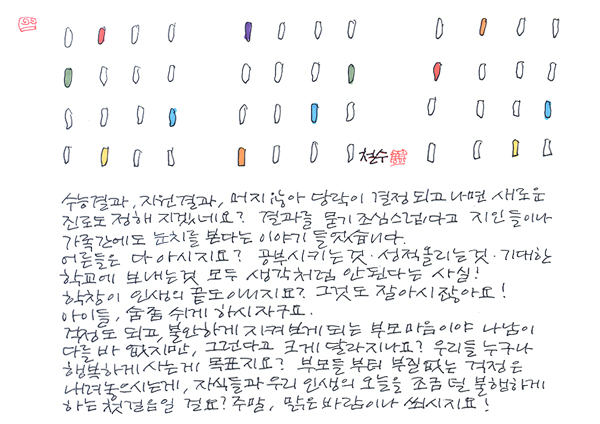 철수
수능결과, 지원결과, 머지않아 당락이 결정되고나면 새로운
진로도 정해지겠네요? 결과를 묻기 조심스럽다고 지인들이나
가족간에도 눈치를 본다는 이야기 들었습니다.
어른들은 다 아시지요? 공부시키는것·성적올리는것·기대한
학교에 보내는것 모두 생각처럼 안된다는 사실!
학창이 인생의 끝도아니지요? 그것도 잘아시잖아요!
아이들, 숨좀 쉬게 하시자구요.
걱정도 되고, 불안하게 지켜보게 되는 부모마음이야 나남이
다를바 없지만, 그런다고 크게 달라지나요? 우리들 누구나
행복하게 사는게 목표지요? 부모들부터 부질없는 걱정은
내려놓으시는게, 자식들과 우리 인생의 오늘을 조금 덜 불행하게
하는 첫걸음일 걸요? 주말, 맑은바람이나 쐬시지요!